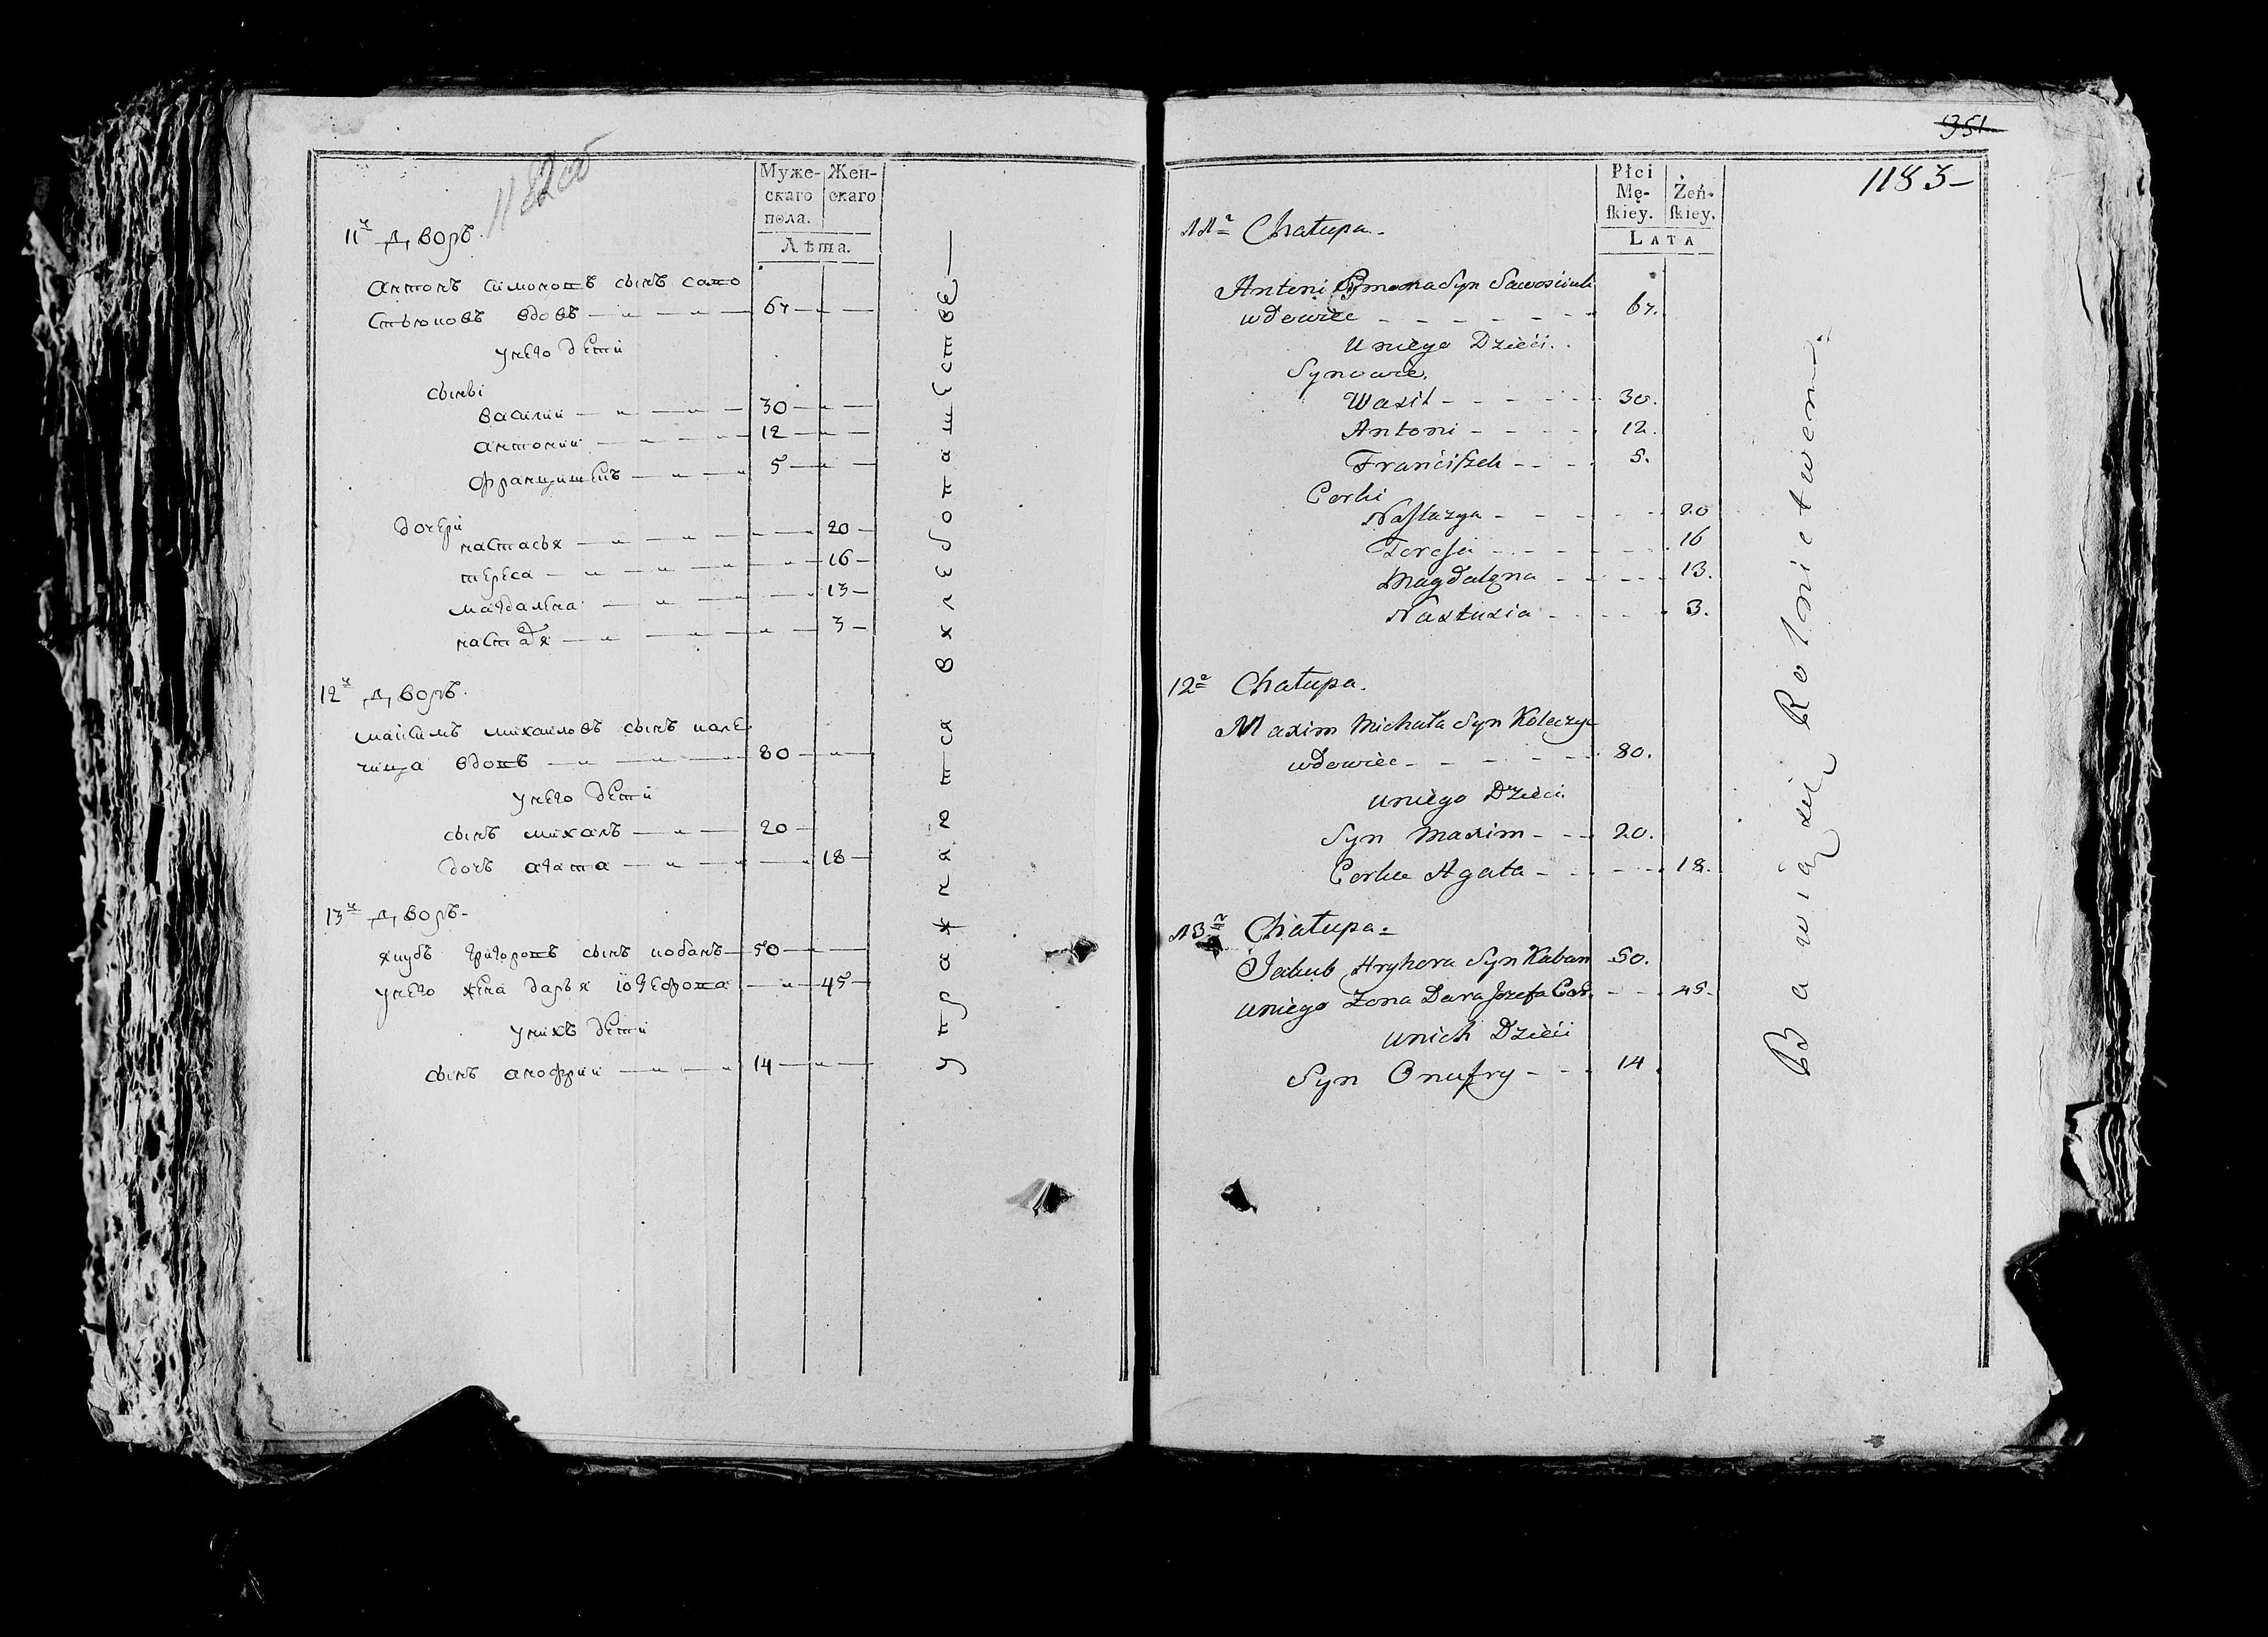 1182об
Муже- Жен-
скаго скаго
пола.
Лѣта.
11й Дворъ.
Антонъ Симоновъ сынъ Саво
стьюковъ вдовъ 67
унего дети
сыны
Василий 30
Антоний 12
Францишекъ 5
дочери
Настасья 20
Тереса 16
Магдалена 13
12й Дворъ.
Максимъ Михайловъ сынъ Кале
чица вдовъ 80
унего дети
сынъ Михалъ 20
дочь Агата 18
13й Дворъ.
Якубъ Григоровъ сынъ Кобанъ 50
унего жена Дарья Іозефова 45
унихъ дети
сынъ Анофрий 14
упражняются в хлебопашестве
951
1183
Płci
Mę- Żeń-
skiey. skiey.
LATA
11a Chałupa.
Antoni Symona Syn Sawościuk
wdowiec 67.
uniego Dzieci.
Synowie.
Wasil 30.
Antoni 12.
Franciszek 5.
Corki
Nastazya 20
Teresa 16
Magdalena 13.
Nastusia 3.
12a Chałupa.
Maxim Michała Syn Koleczyc
wdowiec 80.
uniego Dzieci.
Syn Maxim 20.
Corka Agata 18.
13a Chałupa.
Jakub Hryhora Syn Kaban 50.
uniego Żona Dara Jozefa Cor. 45.
unich Dzieci
Syn Onufry 14.
Bawią się Rolnictwem.